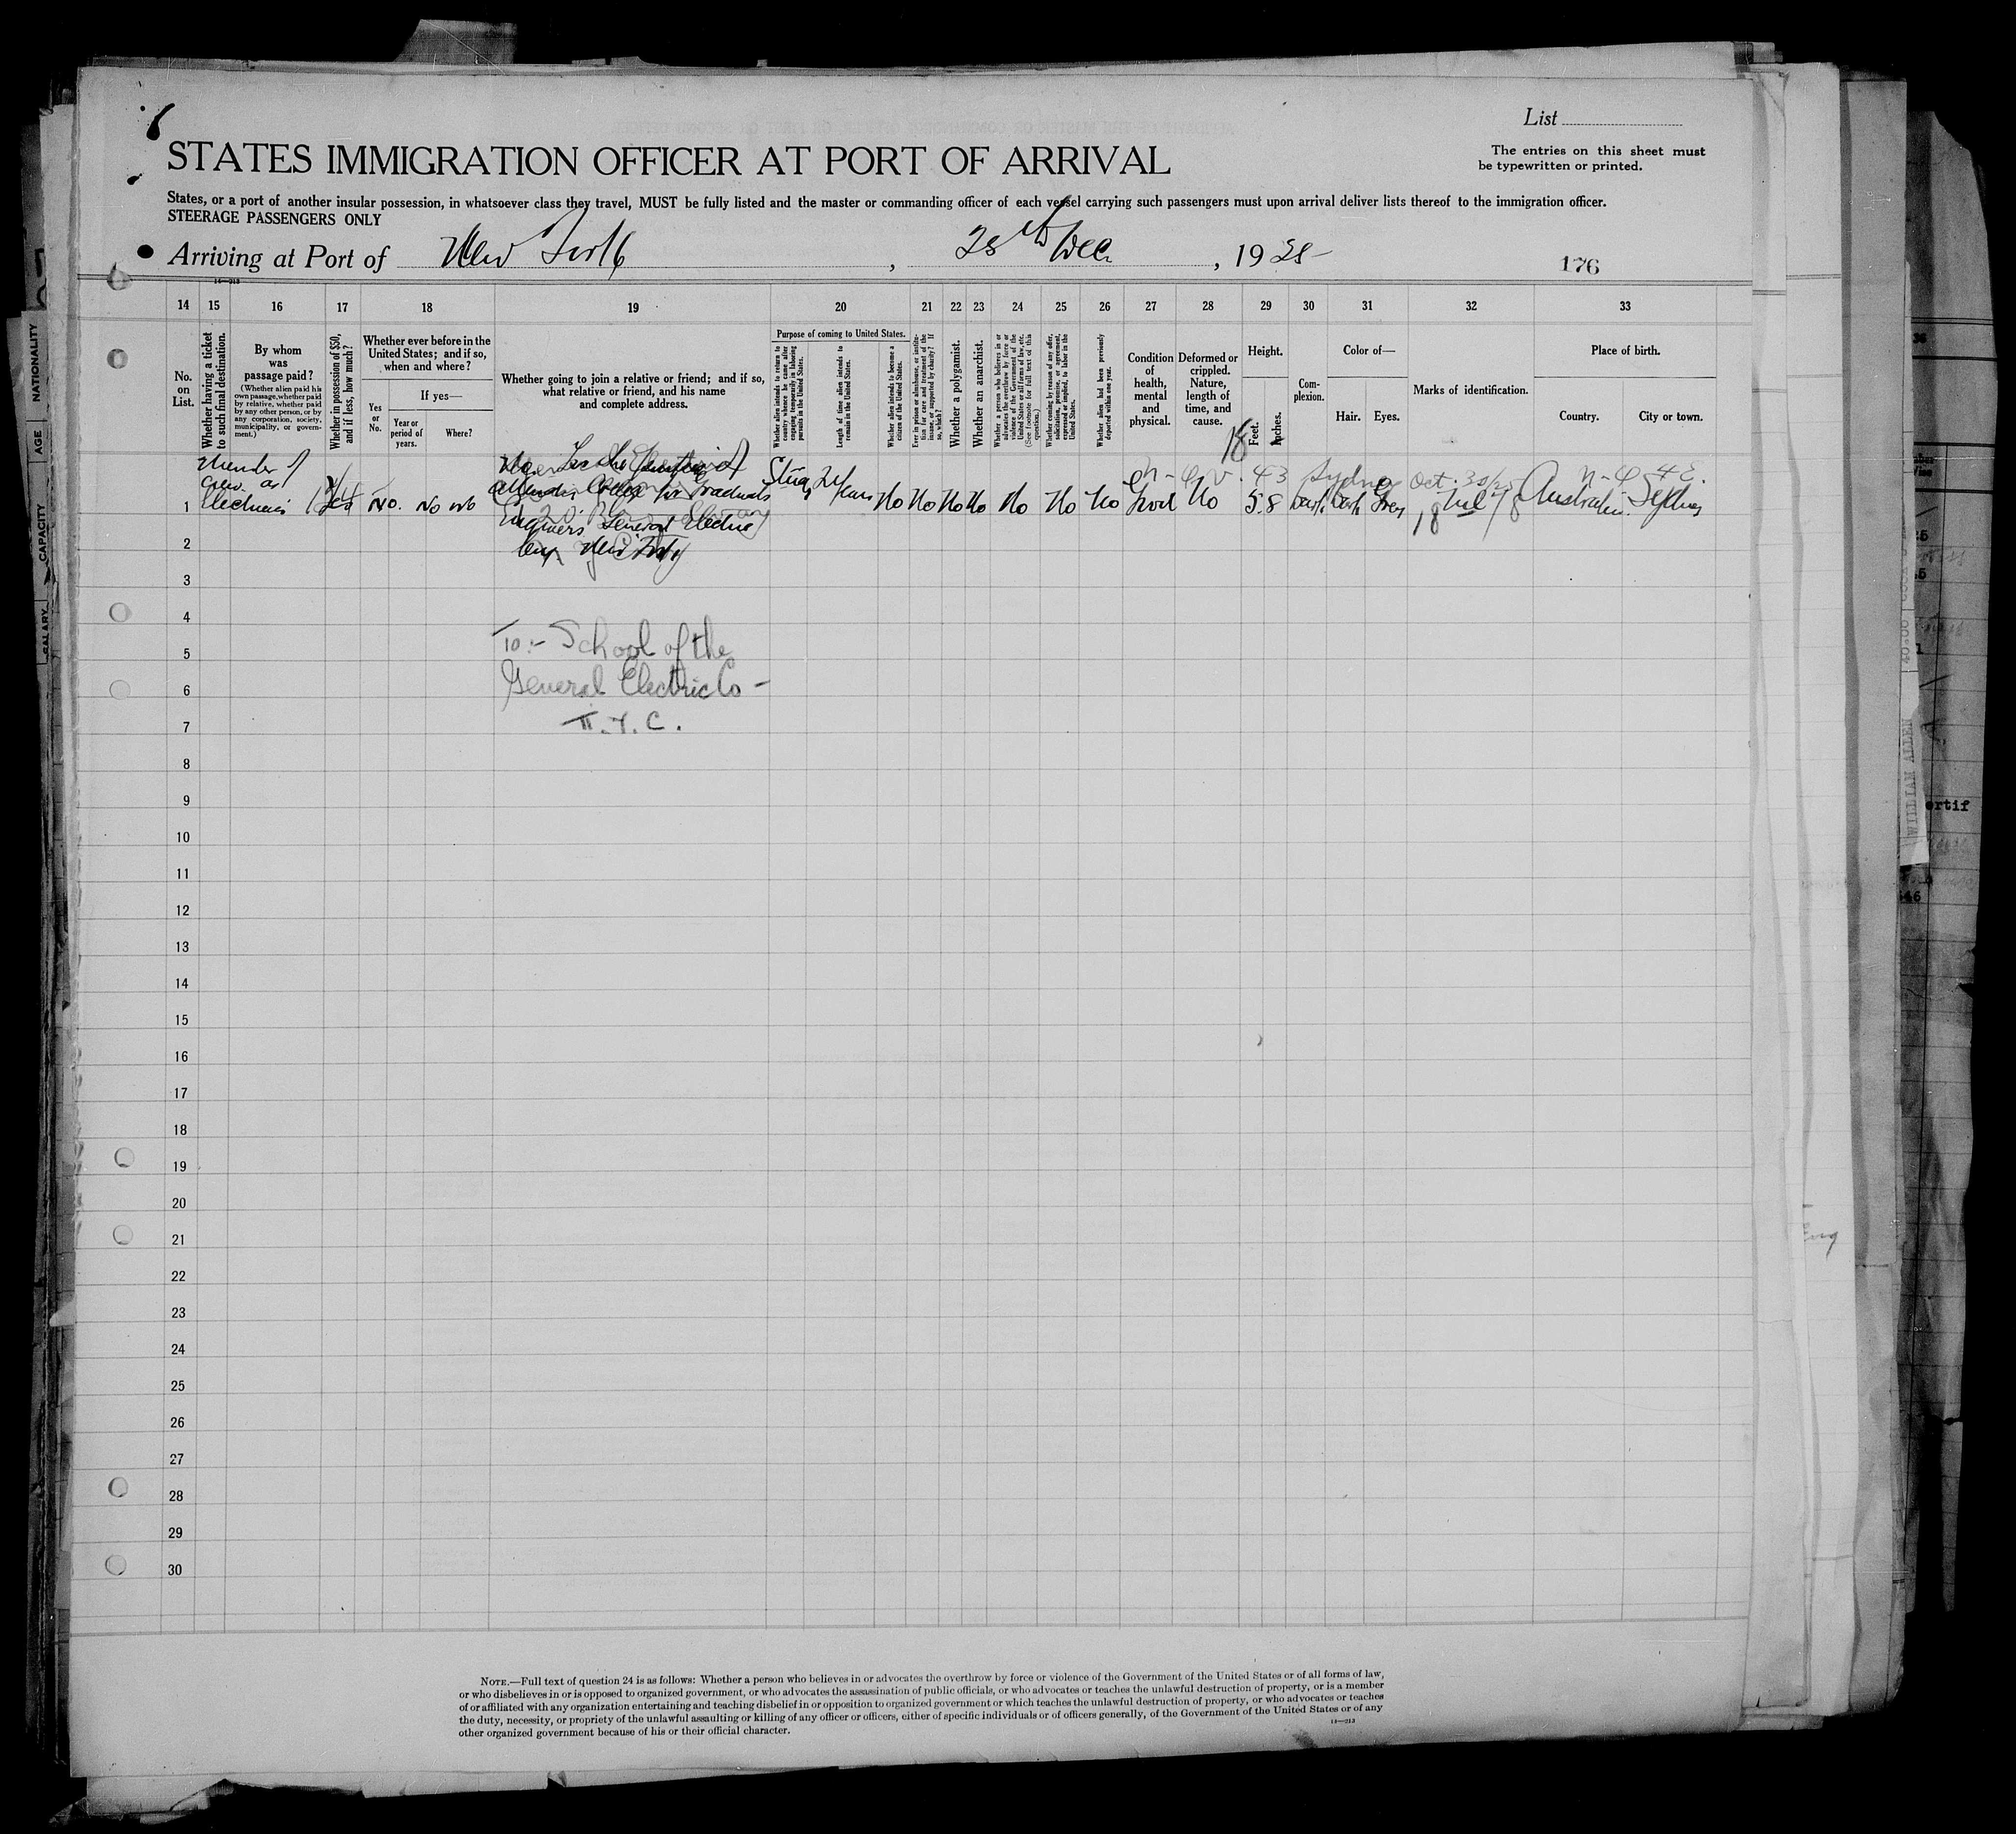 List
STATES IMMIGRATION OFFICER AT PORT OF ARRIVAL
The entries on this sheet must
be typewritten or printed.
States, or a port of another insular possession, in whatsoever class they travel, MUST be fully listed and the master or commanding officer of each vessel carrying such passengers must upon arrival deliver lists thereof to the immigration officer.
STEERAGE PASSENGERS ONLY
Arriving at Port of New York, 28th Dec, 19
176
14 15 16 17 18 19 20 21 22 23 24 25 26 27 28 29 30 31 32 33
No.
on
List.
Whether having a ticket
to such final destination.
By whom
was
passage paid?
(Whether alien paid his
own passage, whether paid
by relative, whether paid
by any other person, or by
any corporation, society,
municipality, or govern-
ment.)
Whether in possession of $50,
and if less, how much?
Whether ever before in the
United States; and if so,
when and where?
If yes—
Yes
or
No.
Year or
period of
years.
Where?
Whether going to join a relative or friend; and if so,
what relative or friend, and his name
and complete address.
Purpose of coming to United States.
Whether alien intends to return to
country whence he came after
engaging temporarily in laboring
pursuits in the United States.
Length of time alien intends to
remain in the United States.
Whether alien intends to become a
citizen of the United States.
Ever in prison or almshouse, or institu-
tion for care and treatment of the
insane, or supported by charity? If
so, which?
Whether a polygamist.
Whether an anarchist.
Whether a person who believes in or
advocates the overthrow by force or
violence of the Government of the
United States or all forms of law, etc.
(See footnote for full text of this
question.)
Whether coming by reason of any offer,
solicitation, promise, or agreement,
expressed or implied, to labor in the
United States.
Whether alien had been previously
deported within one year.
Condition
of
health,
mental
and
physical.
Deformed or
crippled.
Nature,
length of
time, and
cause.
Height.
Feet.
Inches.
Com-
plexion.
Color of—
Hair. Eyes.
Marks of identification.
Place of birth.
Country. City or town.
18
Member of
crew as
Sydney Oct. 30/25
1 Electrician Yes No. No No Study 2 Years No No No No No No No Good No 5.8 Dark Dark Grey Nil Australia Sydney
Engineers General Electric
Coy New York
2
3
4
To:- School of the
5
General Electric Co -
6
N.Y.C.
7
8
9
10
11
12
13
14
15
16
17
18
19
20
21
22
23
24
25
26
27
28
29
30
NOTE.—Full text of question 24 is as follows: Whether a person who believes in or advocates the overthrow by force or violence of the Government of the United States or of all forms of law,
or who disbelieves in or is opposed to organized government, or who advocates the assassination of public officials, or who advocates or teaches the unlawful destruction of property, or is a member
of or affiliated with any organization entertaining and teaching disbelief in or opposition to organized government or which teaches the unlawful destruction of property, or who advocates or teaches
the duty, necessity, or propriety of the unlawful assaulting or killing of any officer or officers, either of specific individuals or of officers generally, of the Government of the United States or of any
other organized government because of his or their official character.
NATIONALITY
AGE
CAPACITY
SALARY
WILLIAM ALLEN
ertif
Eng